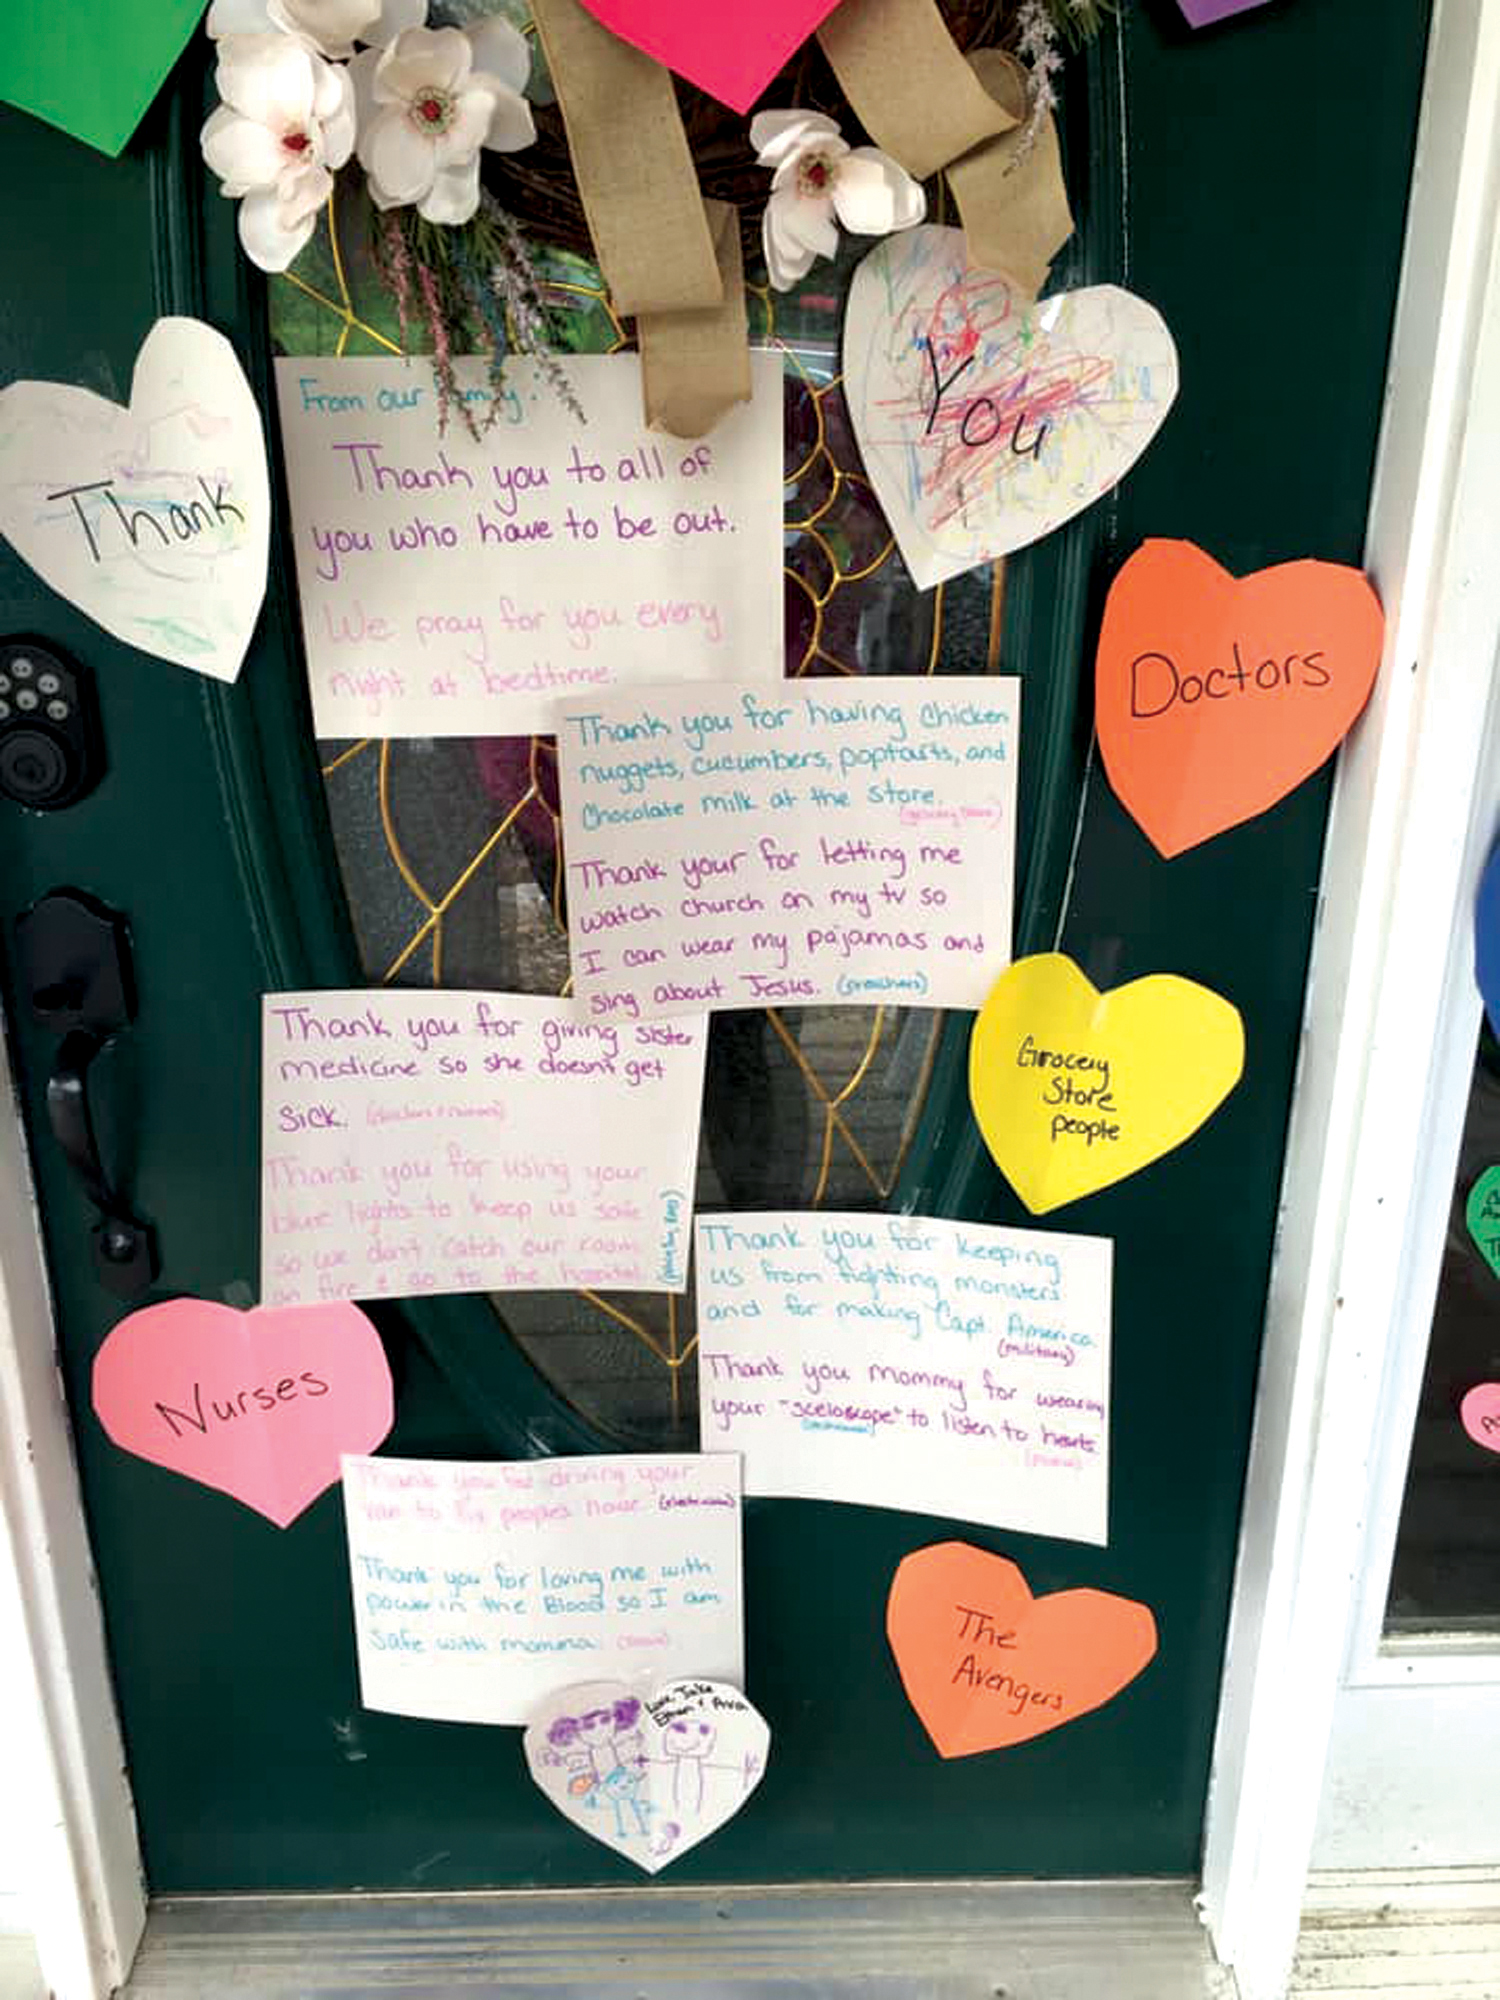 Thank
You
From our family:
Thank you to all of
you who have to be out.
We pray for you every
night at bedtime.
Doctors
Thank you for having chicken
nuggets, cucumbers, poptarts, and
chocolate milk at the store.
(grocery store)
Thank your for letting me
watch church on my tv so
I can wear my pajamas and
sing about Jesus. (preachers)
Grocery
Store
people
Thank you for giving sister
medicine so she doesn't get
sick. (doctors + nurses)
Thank you for using your
blue lights to keep us safe
so we don't catch our room
on fire & go to the hospital
Thank you for keeping
us from fighting monsters
and for making Capt. America.
(military)
Thank you mommy for wearing
your "sceloscope" to listen to hearts.
Nurses
Thank you for driving your
van to fix peoples hour (electricians)
Thank you for loving me with
power in the Blood so I am
safe with momma.
The
Avengers
Love, Jake
Ethan + Ava